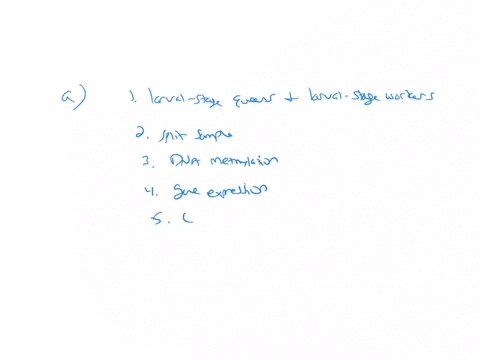 a) 1. larval-stage queens + larval-stage workers
2. split sample
3. DNA methylation
4. Gene expression
5. C